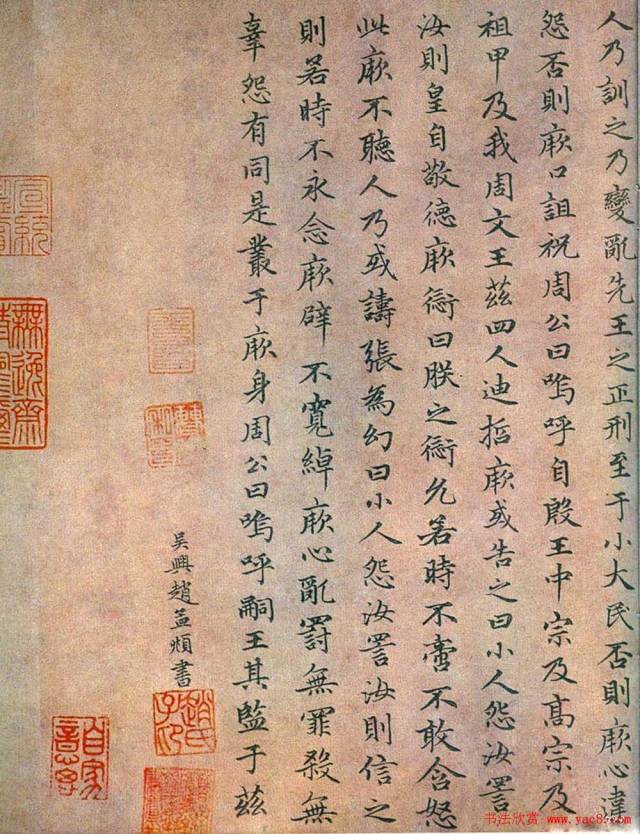 人乃訓之乃變亂先王之正刑至于小大民否則厥心違
怨否則厥口詛祝周公曰嗚呼自殷王中宗及高宗及
祖甲及我周文王茲四人迪哲厥或告之曰小人怨汝詈
汝則皇自敬德厥愆曰朕之愆允若時不啻不敢含怒
此厥不聽人乃或譸張為幻曰小人怨汝詈汝則信之
則若時不永念厥辟不寬綽厥心亂罰無罪殺無
辜怨有同是叢于厥身周公曰嗚呼嗣王其監于茲
吳興趙孟頫書
趙氏子印
宣統
無逸齋
书法欣赏 www.yac8.com